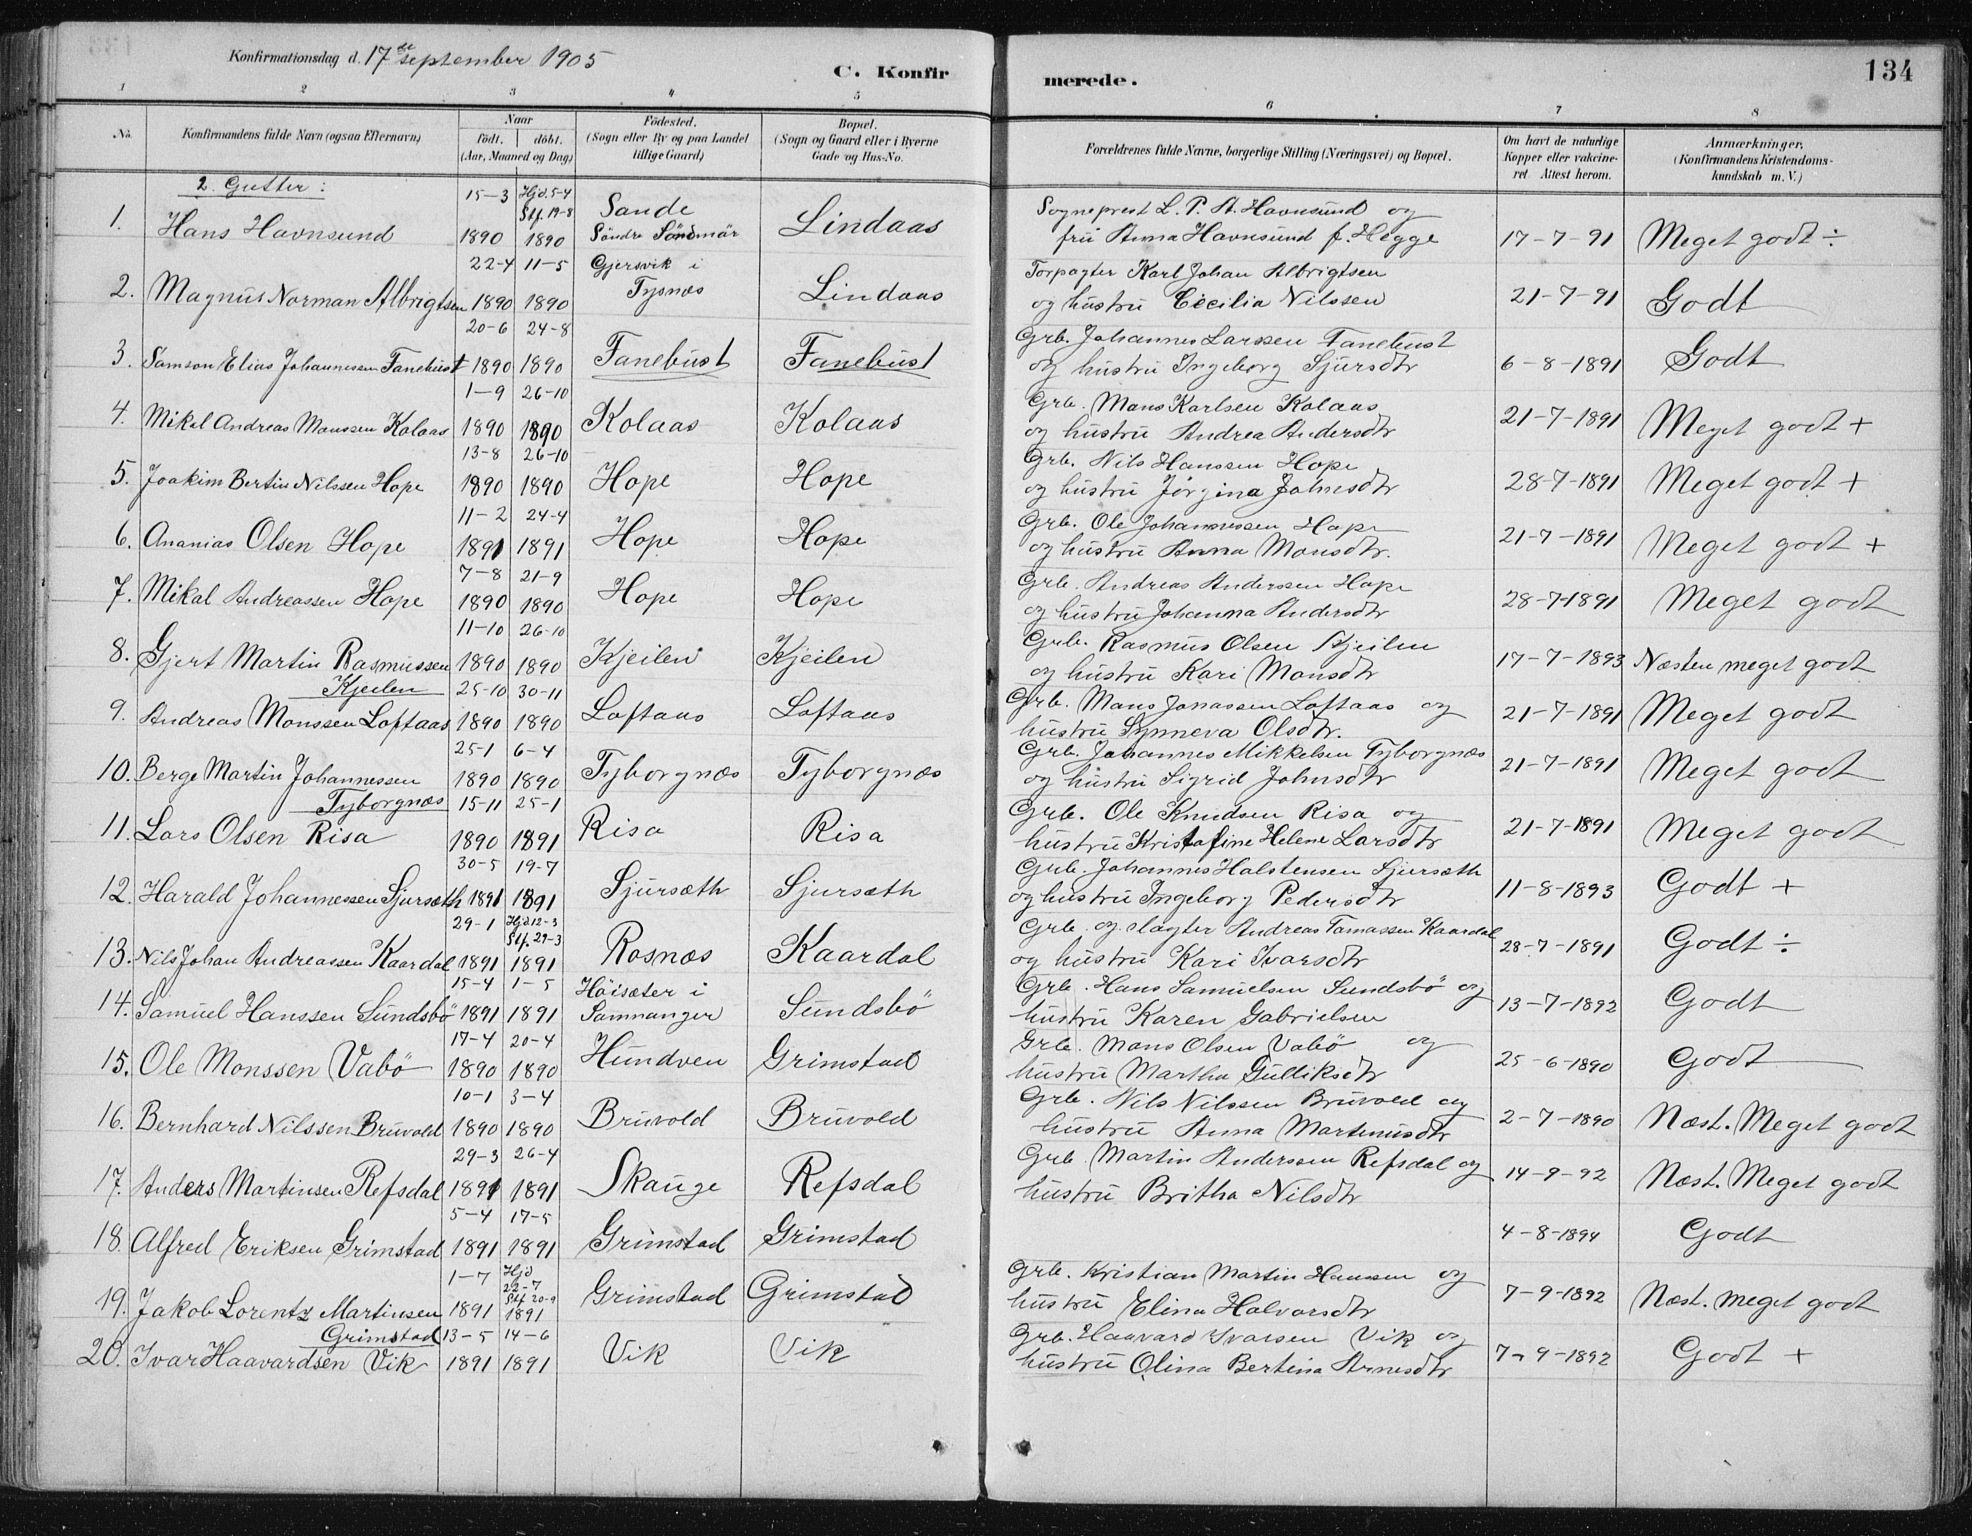 Konfirmationsdag d. 17de september 1905
C. Konfir
merede.
134
1 2 3 4 5 6 7 8
No. Konfirmandens fulde Navn (ogsaa Efternavn) Naar født. døbt. (Aar, Maaned og Dag) Fødested. (Sogn eller By og paa Landet tillige Gaard) Bopæl. (Sogn og Gaard eller i Byerne Gade og Hus-No. Forældrenes fulde Navne, borgerlige Stilling (Næringsvei) og Bopæl. Om havt de naturlige Kopper eller vakcineret Attest herom. Anmærkninger. (Konfirmandens Kristendomskundskab m. V.)
2. Gutter:
1. Hans Havnsund 15-3 1890 Hjd. 5-4 Stf. 19-8 1890 Sande Söndre Söndmör Lindaas Sogneprest L. P. A. Havnsund og fru Anna Havnsund f. Hegge 17-7-91 Meget godt ÷
2. Magnus Norman Albrigtsen 22-4 1890 11-5 1890 Gjersvik i Tysnæs Lindaas Forpagter Karl Johan Albrigtsen og hustru Cecilia Nilssen 21-7-91 Godt
3. Samson Elias Johannessen Fanebust 20-6 1890 24-8 1890 Fanebust Fanebust Grb. Johannes Larssen Fanebust og hustru Ingeborg Sjursdtr 6-8-1891 Godt
4. Mikal Andreas Monssen Kolaas 1-9 1890 26-10 1890 Kolaas Kolaas Grb. Mons Karlsen Kolaas og hustru Andrea Andersdtr 21-7-1891 Meget godt +
5. Joakim Bertin Nilssen Hope 13-8 1890 26-10 1890 Hope Hope Grb. Nils Hanssen Hope og hustru Jørgina Johnsdtr 28-7-1891 Meget godt +
6. Ananias Olsen Hope 11-2 1891 24-4 1891 Hope Hope Grb. Ole Johannessen Hope og hustru Anna Monsdtr. 21-7-1891 Meget godt +
7. Mikal Andreassen Hope 7-8 1890 21-9 1890 Hope Hope Grb. Andreas Anderssen Hope og hustru Johanna Andersdtr 28-7-1891 Meget godt
8. Gjert Martin Rasmussen Kjeilen 11-10 1890 26-10 1890 Kjeilen Kjeilen Grb. Rasmus Olsen Kjeilen og hustru Kari Monsdtr 17-7-1893 Næsten meget godt
9. Andreas Monssen Loftaas 25-10 1890 30-11 1890 Loftaas Loftaas Grb. Mons Jonassen Loftaas og hustru Synneva Olsdtr. 21-7-1891 Meget godt
10. Berge Martin Johannessen Tyborgnæs 25-1 1890 6-4 1890 Tyborgnæs Tyborgnæs Grb. Johannes Mikkelsen Tyborgnæs og hustru Sigrid Johnsdtr 21-7-1891 Meget godt
11. Lars Olsen Risa 15-11 1890 25-1 1891 Risa Risa Grb. Ole Knudsen Risa og hustru Kristofine Helene Larsdtr 21-7-1891 Meget godt
12. Harald Johannessen Sjursæth 30-5 1891 19-7 1891 Sjursæth Sjursæth Grb. Johannes Halstensen Sjursæth og hustru Ingeborg Pedersdtr 11-8-1893 Godt +
13. Nils Johan Andreassen Kaardal 29-1 1891 Hjd 12-3 Stf. 29-3 1891 Rosnæs Kaardal Grb. og slagter Andreas Tomassen Kaardal og hustru Kari Ivarsdtr 28-7-1891 Godt ÷
14. Samuel Hanssen Sundsbö 15-4 1891 1-5 1891 Höisæter i Samnanger Sundsbö Grb. Hans Samuelsen Sundsbö og hustru Karen Gabrielsen 13-7-1892 Godt
15. Ole Monssen Vabö 17-4 1890 20-4 1890 Hundven Grimstad Grb. Mons Olsen Vabö og hustru Martha Gulliksdtr 25-6-1890 Godt
16. Bernhard Nilssen Bruvold 10-1 1890 3-4 1890 Bruvold Bruvold Grb. Nils Nilssen Bruvold og hustru Anna Martinusdtr 2-7-1890 Næst. Meget godt
17. Anders Martinsen Refsdal 29-3 1891 26-4 1891 Skauge Refsdal Grb Martin Anderssen Refsdal og hustru Britha Nilsdtr 14-9-92 Næst. Meget godt
18. Alfred Eriksen Grimstad 5-4 1891 17-5 1891 Grimstad Grimstad 4-8-1894 Godt
19. Jakob Lorentz Martinsen Grimstad 1-7 1891 Hjd 22-7 Stf 20-9 1891 Grimstad Grimstad Grb. Kristian Martin Hanssen og hustru Elina Halvorsdtr 7-9-1892 Næst. meget godt
20. Ivar Haavardsen Vik 13-5 1891 14-6 1891 Vik Vik Grb. Haavard Ivarsen Vik og hustru Olina Bertina Arnesdtr 7-9-1892 Godt +